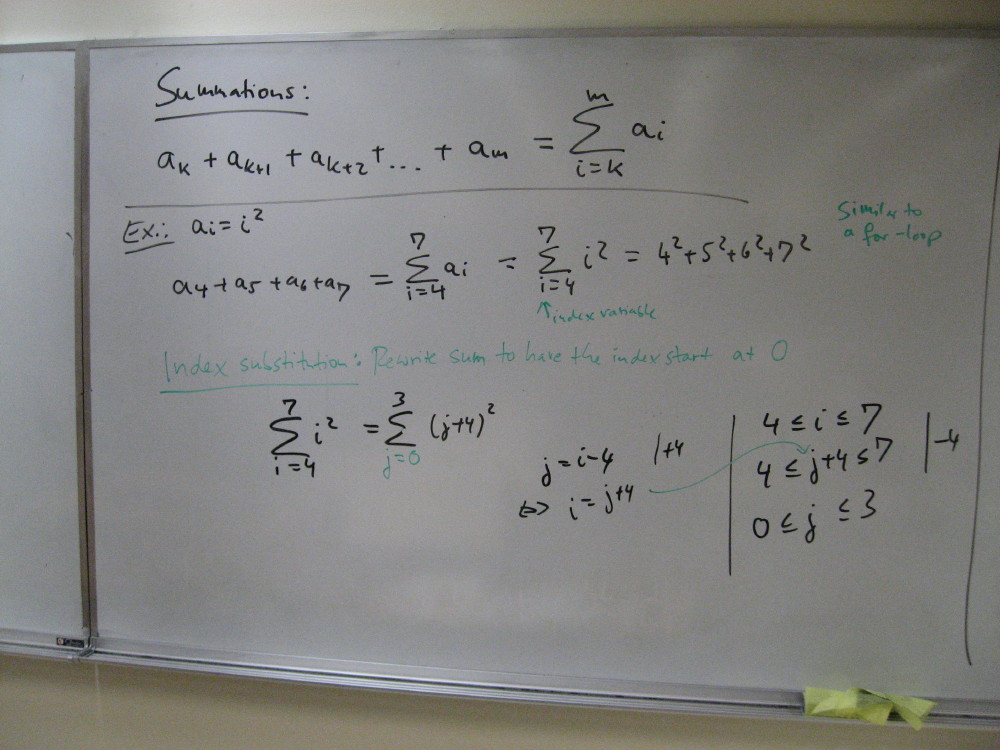 Summations:
aₖ + aₖ₊₁ + aₖ₊₂ + ... + aₘ = ∑_{i=k}^{m} aᵢ
Ex.: aᵢ = i²
Similar to
a for-loop
a₄ + a₅ + a₆ + a₇ = ∑_{i=4}^{7} aᵢ = ∑_{i=4}^{7} i² = 4² + 5² + 6² + 7²
↑ index variable
Index substitution: Rewrite sum to have the index start at 0
∑_{i=4}^{7} i² = ∑_{j=0}^{3} (j+4)²
j = i-4 |+4
⇔ i = j+4
4 ≤ i ≤ 7
4 ≤ j+4 ≤ 7 |-4
0 ≤ j ≤ 3